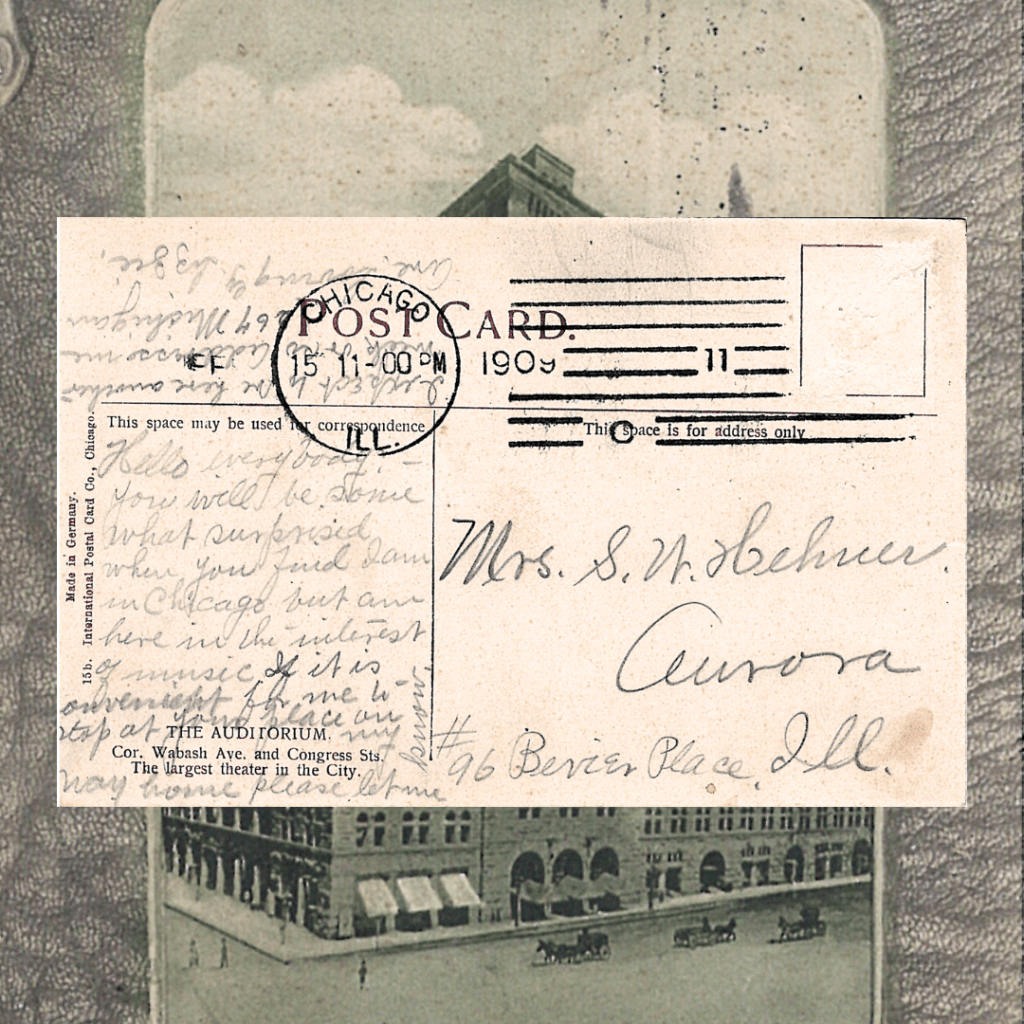 POST CARD.
CHICAGO
15 11-00 PM
ILL.
1909
11
This space may be used for correspondence
This space is for address only
Made in Germany.
15 b. International Postal Card Co., Chicago.
Hello everybody! –
You will be some
what surprised
when you find I am
in Chicago but am
here in the interest
of music If it is
convenient for me to
stop at your place on my
way home please let me
know
I expect to be here another
week or so address me
264 Michigan
Ave. Lizzie.
THE AUDITORIUM.
Cor. Wabash Ave. and Congress Sts.
The largest theater in the City.
Mrs. S. W. Hehner.
Aurora
Ill.
#96 Bevier Place